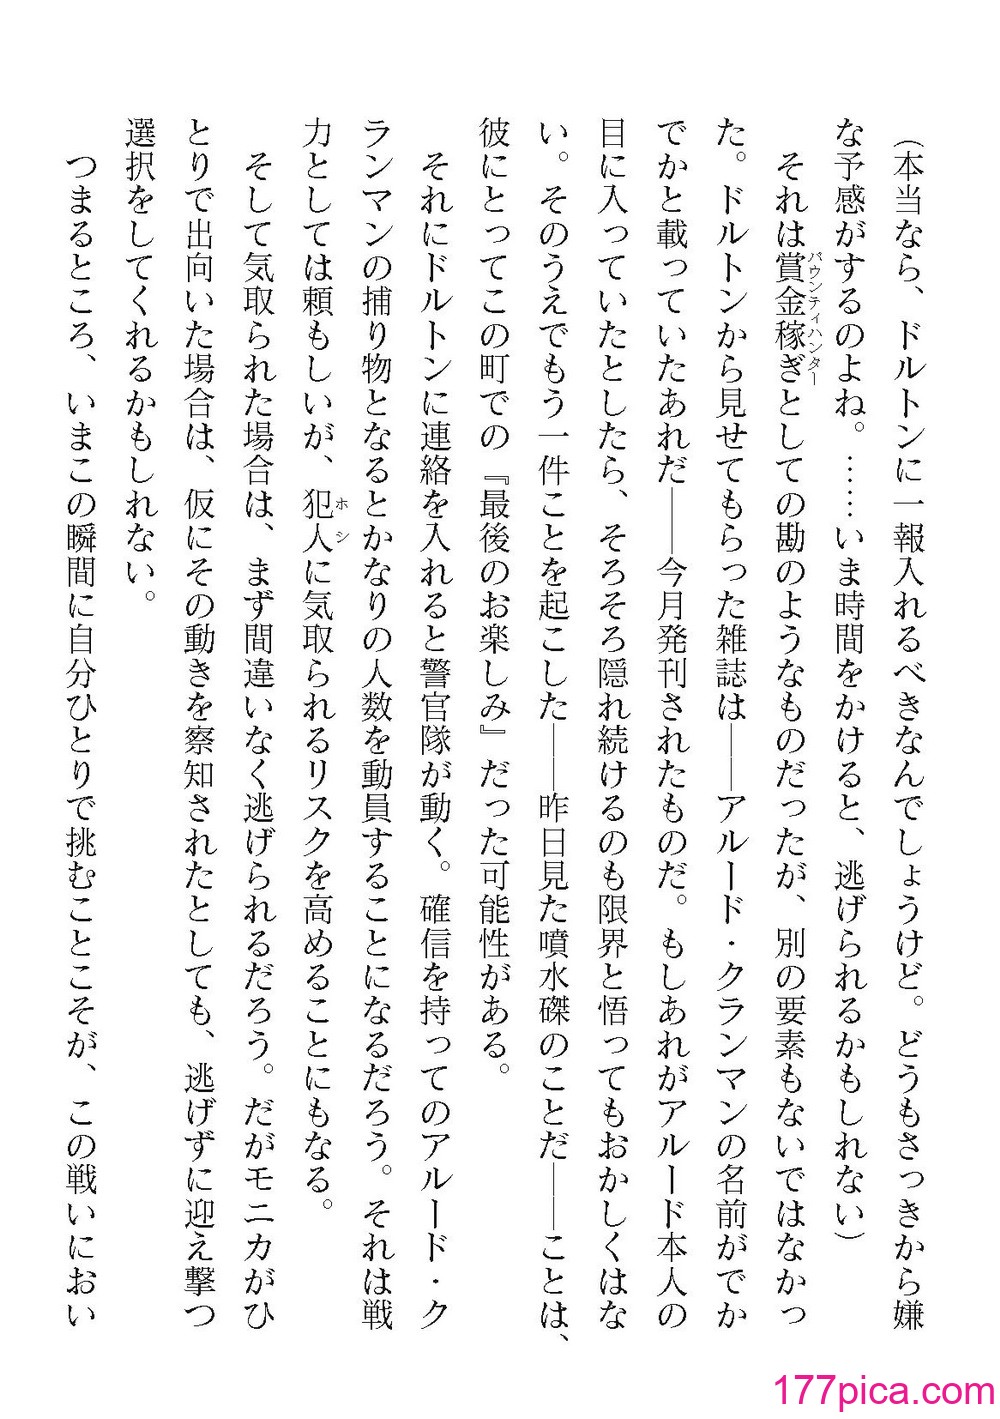 （本当なら、ドルトンに一報入れるべきなんでしょうけど。どうもさっきから嫌
な予感がするのよね。……いま時間をかけると、逃げられるかもしれない）
それは賞金稼ぎとしての勘のようなものだったが、別の要素もないではなかっ
バウンティハンター
た。ドルトンから見せてもらった雑誌は――アルード・クランマンの名前がでか
でかと載っていたあれだ――今月発刊されたものだ。もしあれがアルード本人の
目に入っていたとしたら、そろそろ隠れ続けるのも限界と悟ってもおかしくはな
い。そのうえでもう一件ことを起こした――昨日見た噴水磔のことだ――ことは、
彼にとってこの町での『最後のお楽しみ』だった可能性がある。
それにドルトンに連絡を入れると警官隊が動く。確信を持ってのアルード・ク
ランマンの捕り物となるとかなりの人数を動員することになるだろう。それは戦
力としては頼もしいが、犯人に気取られるリスクを高めることにもなる。
ホシ
そして気取られた場合は、まず間違いなく逃げられるだろう。だがモニカがひ
とりで出向いた場合は、仮にその動きを察知されたとしても、逃げずに迎え撃つ
選択をしてくれるかもしれない。
つまるところ、いまこの瞬間に自分ひとりで挑むことこそが、この戦いにおい
177pica.com